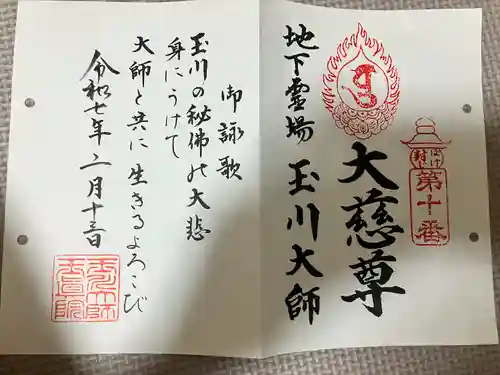 地下霊場 玉川大師
大慈尊
ぼけ封
第十番
御詠歌
玉川の秘佛の大悲
身にうけて
大師と共に生きるよろこび
令和七年二月十三日
玉眞院